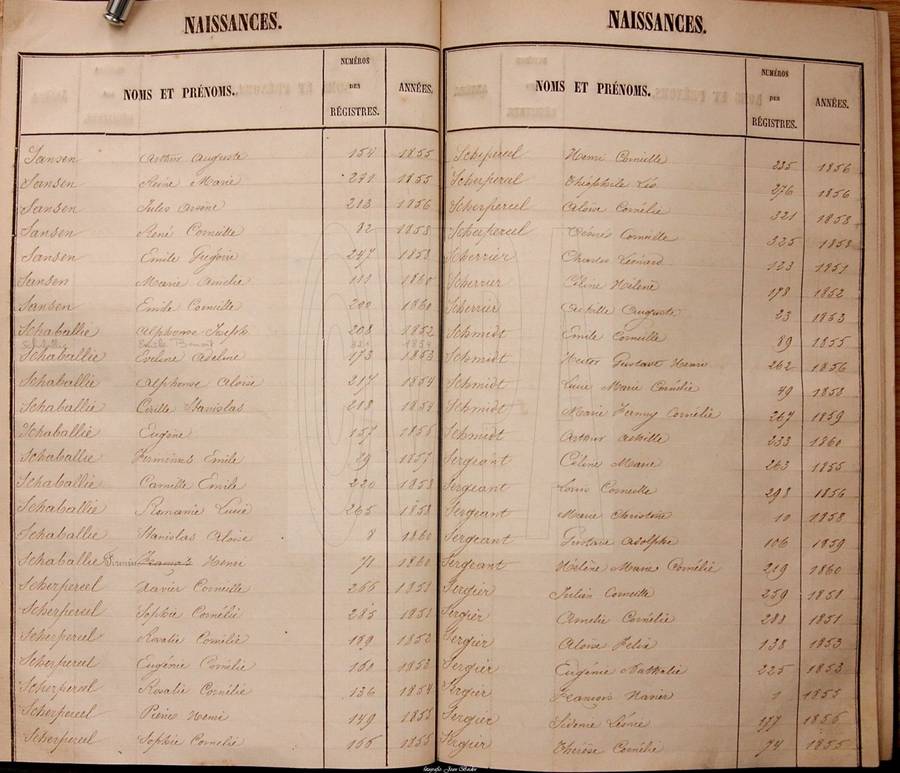 NAISSANCES.
NOMS ET PRÉNOMS. NUMÉROS DES RÉGISTRES. ANNÉES.
Sansen Arthur Auguste 154 1855
Sansen Reine Marie 291 1855
Sansen Jules Arsène 213 1856
Sansen René Corneille 82 1858
Sansen Emile Grégoire 247 1858
Sansen Marie Amélie 111 1860
Sansen Emile Corneille 200 1860
Schaballie Alphonse Joseph 208 1852
Emile Benoit
Schaballie Eveline Adeline 173 1853
Schaballie Alphonse Aloise 217 1854
Schaballie Cirille Stanislas 218
Schaballie Eugène 157
Schaballie Emile 29 1857
Schaballie Camille Emile 220 1858
Schaballie Romanie Lucie 265 1858
Schaballie Stanislas Aloise 8 1860
Schaballie Henri 71 1860
Scherpereel Xavier Corneille 266 1851
Scherpereel Sophie Cornélie 285 1851
Scherpereel Rosalie Cornélie 189 1852
Scherpereel Eugénie Cornélie 160 1853
Scherpereel Rosalie Cornélie 136 1854
Scherpereel Pierre Henri 149 1855
Scherpereel Sophie Cornelie 166 1855
NAISSANCES.
NOMS ET PRÉNOMS. NUMÉROS DES RÉGISTRES. ANNÉES.
Scherpereel Henri Corneille 235 1856
Scherpereel Théophile Léo 276 1856
Scherpereel Aloïse Cornélie 321 1858
Scherpereel Désiré Corneille 325 1858
Scherrier Charles Léonard 123 1851
Scherrier Céline Hélène 178 1852
Scherrier Achille Auguste 23 1853
Schmidt Emile Corneille 89 1855
Schmidt Hector Gustave Henri 262 1856
Schmidt Lucie Marie Cornélie 49 1858
Schmidt Marie Fanny Cornélie 267 1859
Schmidt Arthur Achille 233 1860
Sergeant Céline Marie 263 1855
Sergeant Louis Corneille 298 1856
Sergeant Marie Christine 10 1858
Sergeant Gustave Adolphe 106 1859
Sergeant Hélène Marie Cornélie 219 1860
Sergier Julien Corneille 259 1851
Sergier Amelie Cornélie 288 1851
Sergier Aloïse Felix 138 1853
Sergier Eugénie Nathalie 225 1853
Sergier François Xavier 1 1855
Sergier Sidonie Léonie 177 1855
Sergier Thérèse Cornélie 74 1855